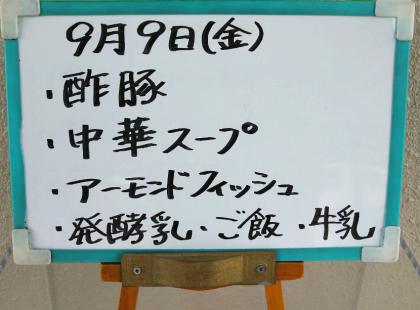 9月9日(金)
・酢豚
・中華スープ
・アーモンドフィッシュ
・発酵乳・ご飯・牛乳